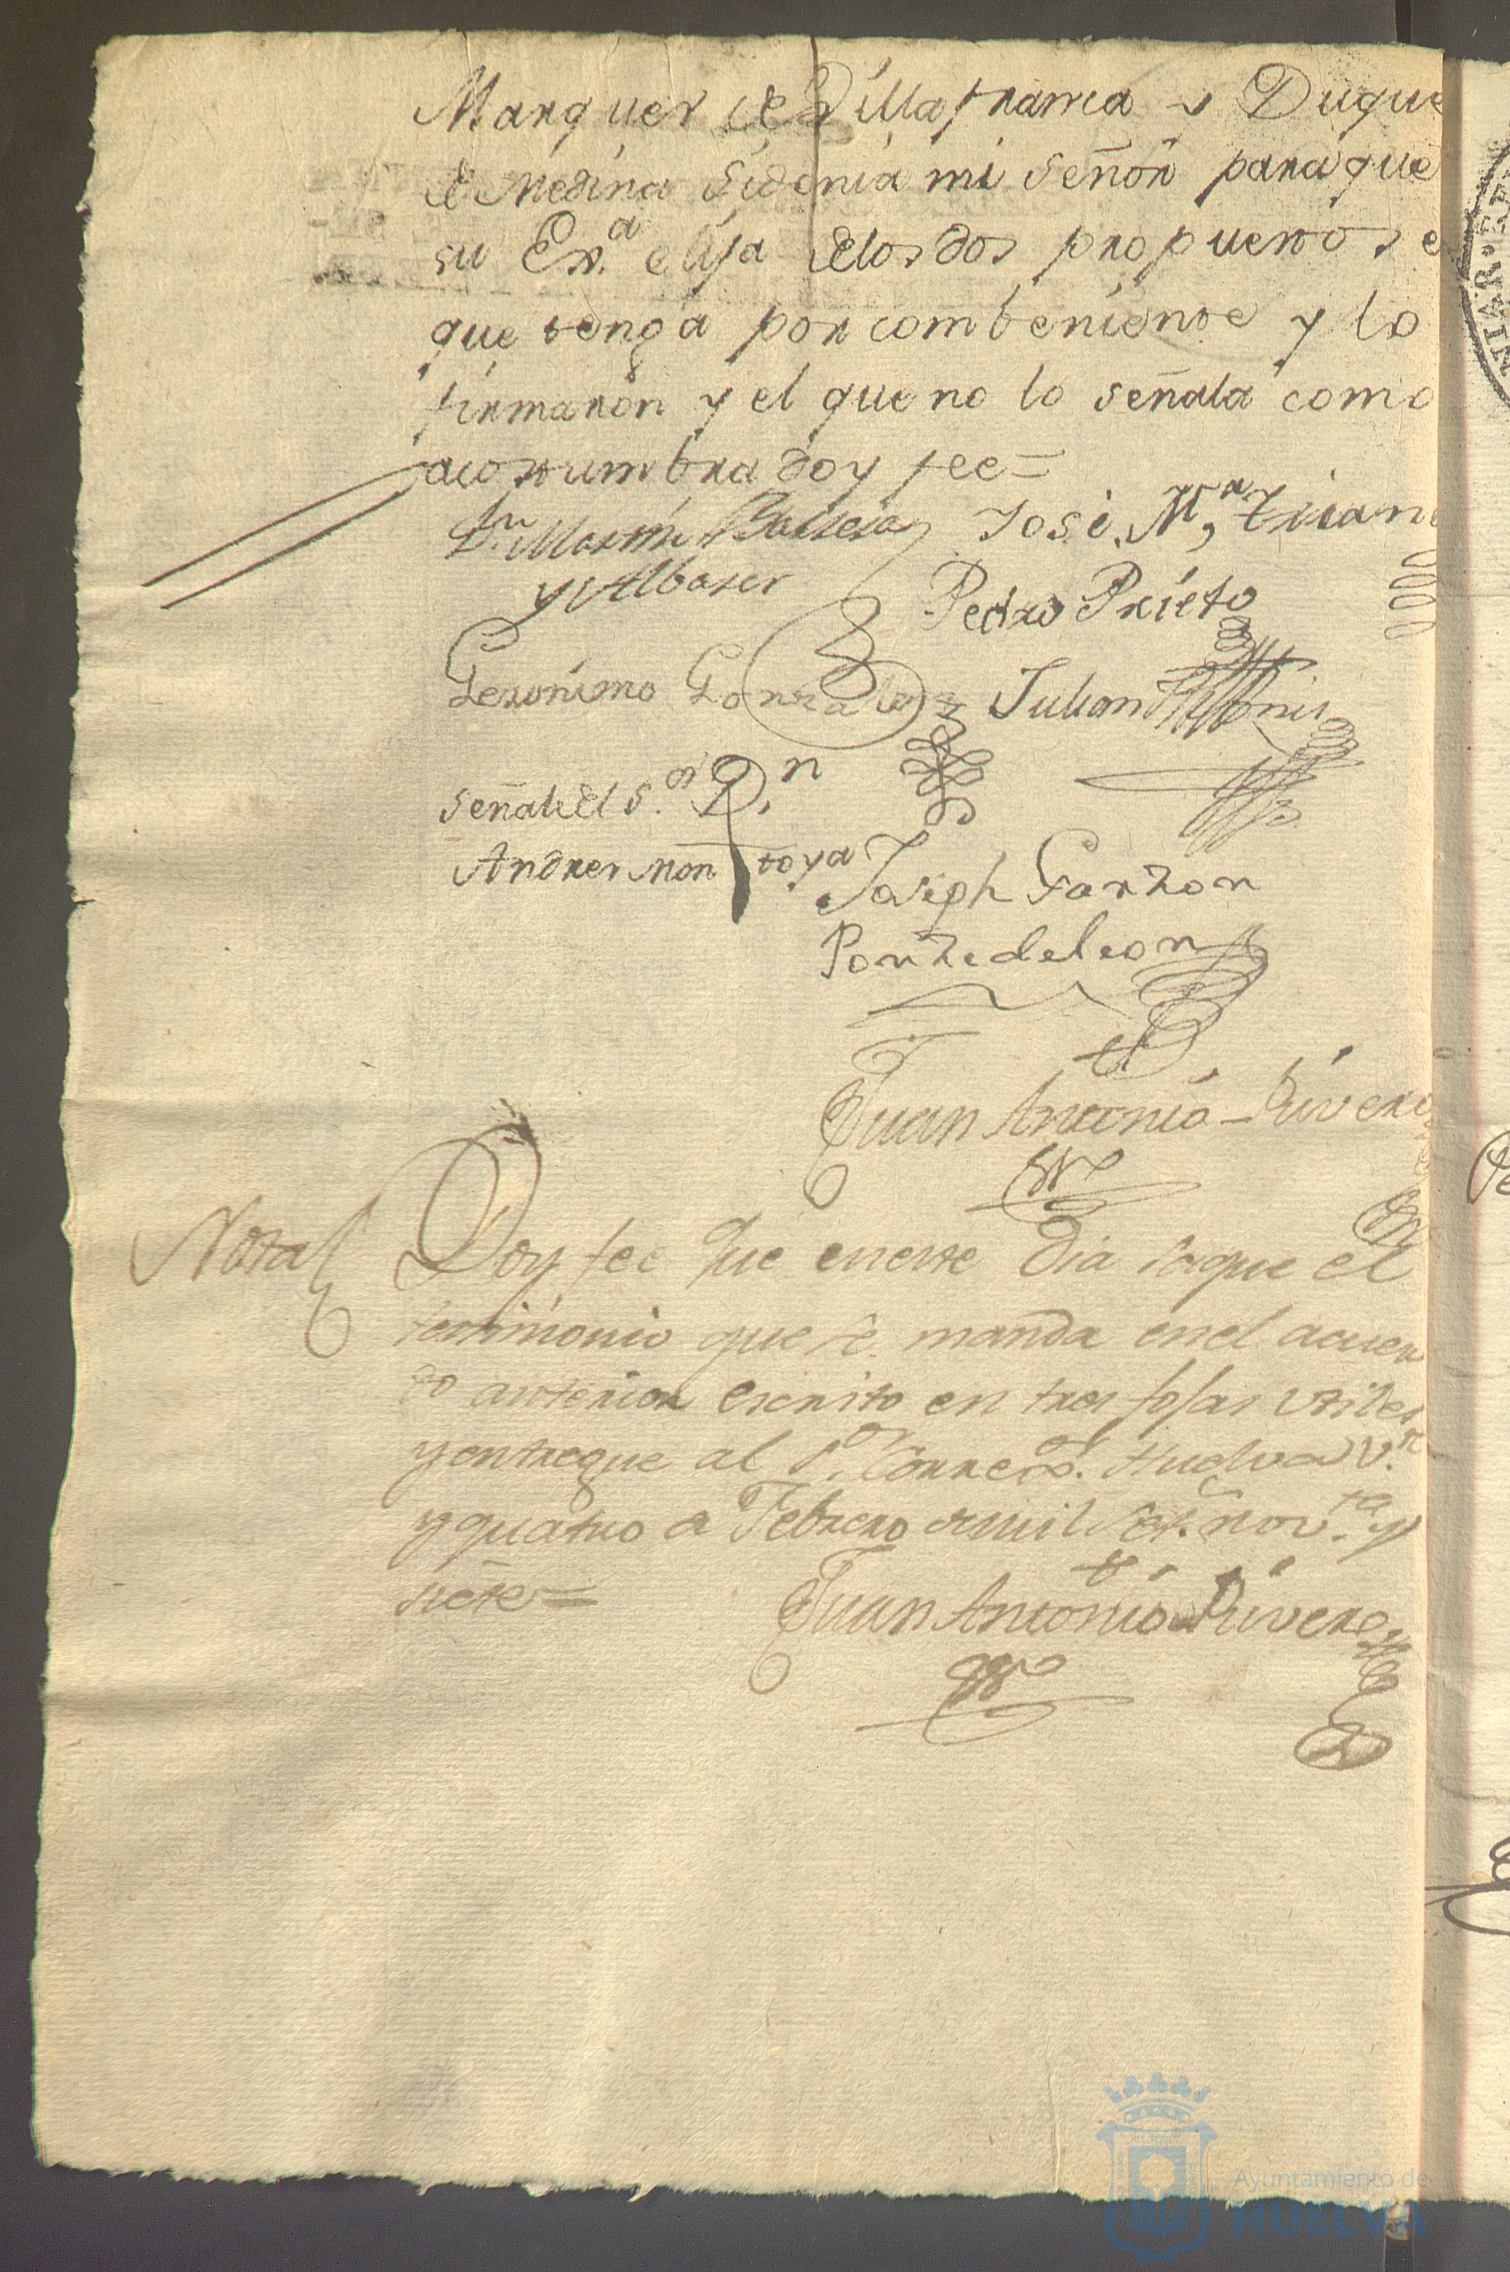 Marques de Villafranca y Duque
de Medina Sidonia mi señor para que
su Exa. elija delos dos propuestos e
que tenga por combeniente y lo
firmaron y el que no lo señala como
acostumbra doy fee=
Dn Martin Barrera José Ma, Trian
y Albaser
Pedro Prieto
Geronimo Gonzales Julian
señal del Sor. Dn.
Andres Montoya
Joseph Garzon
Ponze de leon
Juan Antonio Rivero
Nota Doy fee que eneste dia saque el
testimonio que se manda enel acuer
do anterior escrito en tres fojas utiles
y entregue al Sor. Corregor. Huelva Vte
y quatro de Febrero de mil setos. novta. y
siete=
Juan Antonio Rivero
Ayuntamiento de
HUELVA